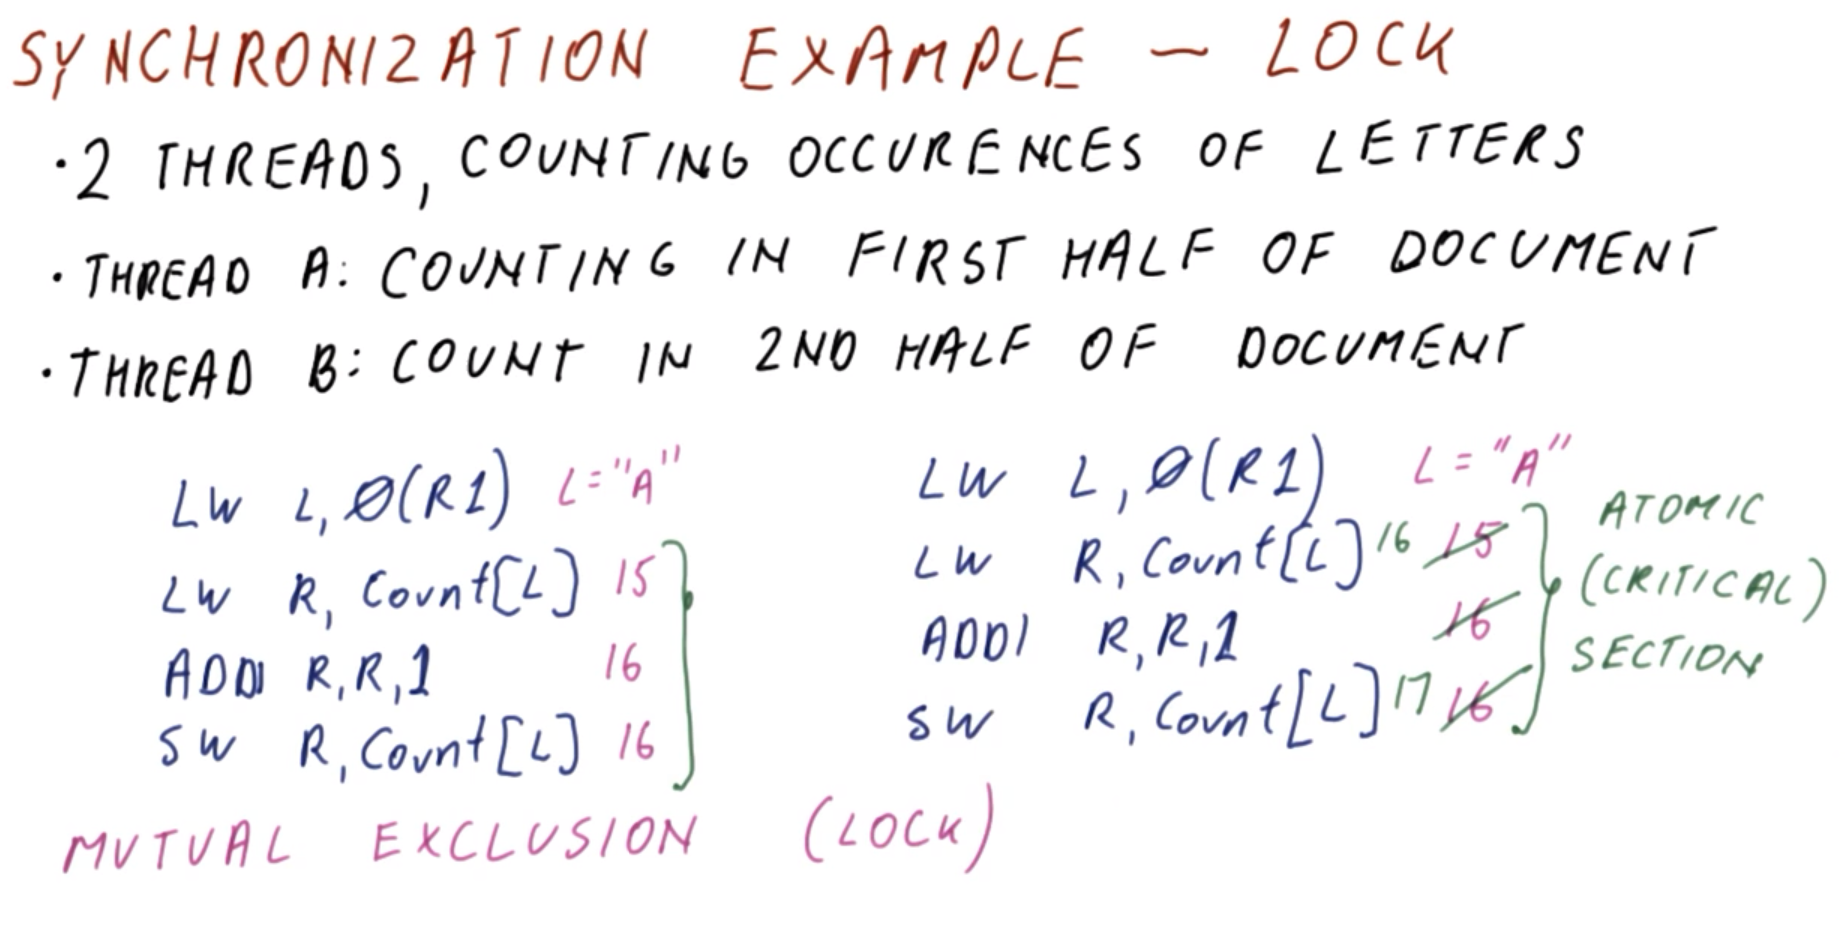 SYNCHRONIZATION EXAMPLE – LOCK
· 2 THREADS, COUNTING OCCURENCES OF LETTERS
· THREAD A: COUNTING IN FIRST HALF OF DOCUMENT
· THREAD B: COUNT IN 2ND HALF OF DOCUMENT
LW L, Ø(R1) L="A"
LW R, Count[L] 15
ADDI R,R,1 16
SW R, Count[L] 16
LW L, Ø(R1) L="A"
LW R, Count[L] 16 15
ADDI R,R,1 16
SW R, Count[L] 17 16
ATOMIC
(CRITICAL)
SECTION
MUTUAL EXCLUSION (LOCK)